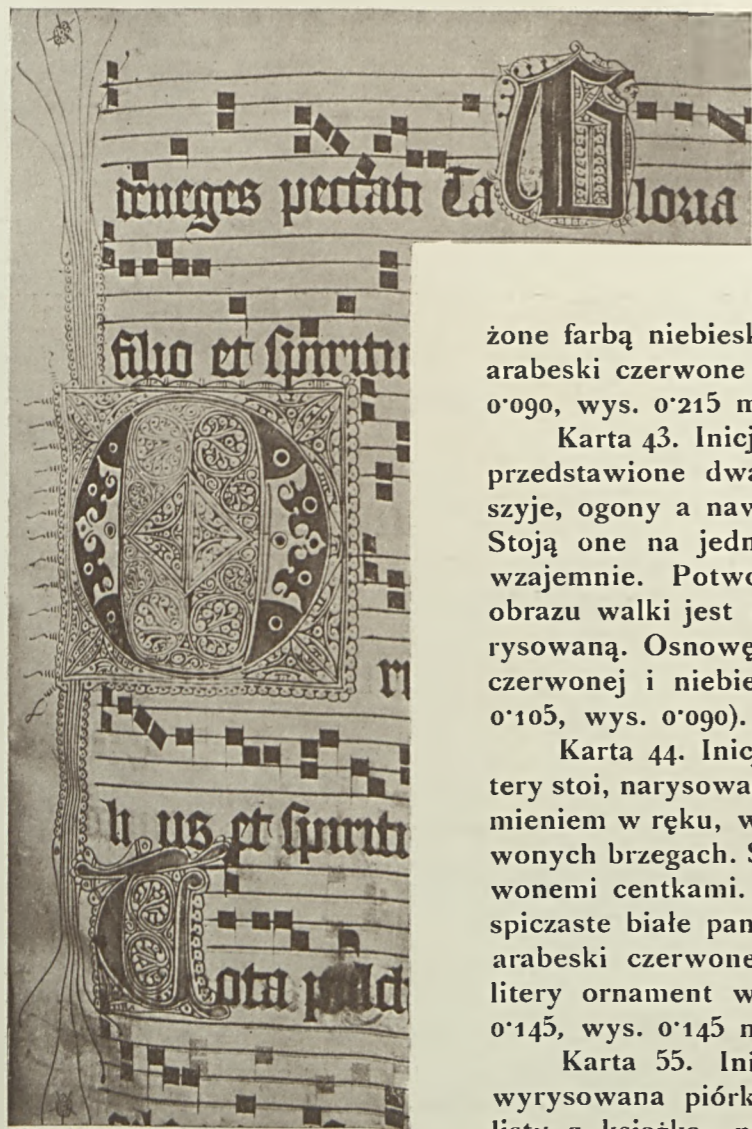 deneges peccati Ta Gloria
filio et spiritu
li us et spiritu
Tota pulch
żone farbą niebiesk
arabeski czerwone
0·090, wys. 0·215 m
Karta 43. Inicj
przedstawione dwa
szyje, ogony a naw
Stoją one na jedn
wzajemnie. Potwo
obrazu walki jest
rysowaną. Osnowę
czerwonej i niebie
0·105, wys. 0·090).
Karta 44. Inic
tery stoi, narysowa
mieniem w ręku, w
wonych brzegach. S
wonemi centkami.
spiczaste białe pan
arabeski czerwone
litery ornament w
0·145, wys. 0·145 m
Karta 55. Ini
wyrysowana piórk